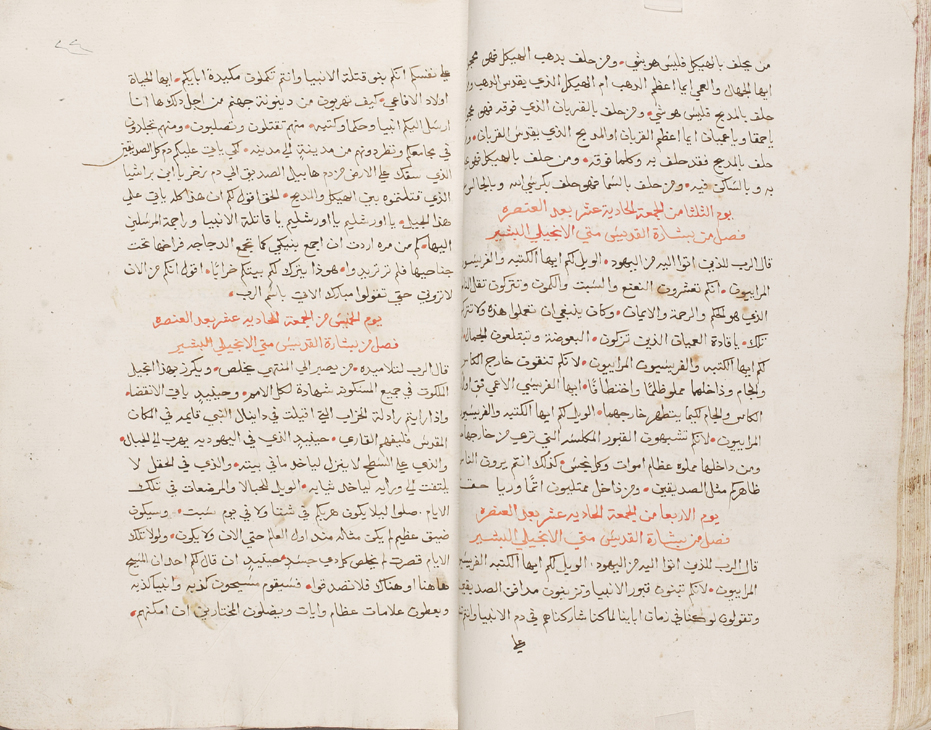 من يحلف بالهيكل فليس هو شي • ومن حلف بدهب الهيكل فهو
ايها الجهال والعمي ايما اعظم الدهب ام الهيكل الذي يقدس الدهب
حلف بالمدبح فليس هو شي • ومن حلف بالقربان الذي فوقه فهو
ياحمقا وياعميان ايما اعظم القربان اوالمدبح الذي يقدس القربان •
حلف بالمدبح فقد حلف به وكلما فوقه • ومن حلف بالهيكل فهو
به وبالساكن فيه • ومن حلف بالسما فهو حلف بكرسي الله وبالجالس
يوم الثلثا من الجمعة الحادية عشر بعد العنصره
فصل من بشارة القديس متي الانجيلي البشير
قال الرب للذين اتوا اليه من اليهود • الويل لكم ايها الكتبه والفريسيون
المراييون • انكم تعشرون النعنع والسبت والكمون وتتركون تقل
الذي هو الحكم والرحمة والايمان • وكان ينبغي ان تعملوا هذه ولا
تلك • ياقادة العميان الذين تركون • البعوضة ويتبلعون الجمال
لكم ايها الكتبه والفريسيون المراييون • لانكم تنقون خارج الكاس
والجام وداخلهما مملو ظلما واختطافا • ايها الفريسي الاعمي نق اولا
الكاس والجام لكيما يتطهر خارجهما • الويل لكم ايها الكتبه والفريسيون
المراييون • لانكم تشبهون القبور المكلسه التي تري من خارجها
ومن داخلها مملوه عظام اموات وكل نجس • كذلك انتم يرون الناس
ظاهركم مثل الصديقين • ومن داخل ممتليون اثما وريا
يوم الاربعا من الجمعة الحاديه عشر بعد العنصره
فصل من بشارة القديس متي الانجيلي البشير
قال الرب للذين اتوا اليه من اليهود • الويل لكم ايها الكتبه الفريسيون
المراييون • لانكم تبنون قبور الانبيا وتزينون مدافن الصديقين
وتقولون لو كنا في زمان اباينا لما كنا شاركناهم في دم الانبيا وانتم
علي
علي نفسكم انكم بنو قتلة الانبيا وانتم تكملون مكيدة ابايكم • ايها الحياة
اولاد الافاعي • كيف تهربون من دينونة جهنم من اجل ذلك ها انا
ارسل اليكم انبيا وحكما وكتبه • منهم تقتلون وتصلبون • ومنهم تجلدون
في مجامعكم وتطردونهم من مدينة الي مدينه • لكي ياتي عليكم دم كل الصديقين
الذي سفك علي الارض من دم هابيل الصديق الي دم زخريا ابن براشيا
الذي قتلتموه بين الهيكل والمدبح • الحق اقول لكم ان هذا كله ياتي علي
هذا الجيل • يا اورشليم يا اورشليم يا قاتلة الانبيا وراجمة المرسلين
اليها • كم من مره اردت ان اجمع بنيكي كما تجمع الدجاجه فراخها تحت
جناحيها فلم تريدوا • هوذا يترك لكم بيتكم خرابا • اقول لكم من الان
لا تروني حتي تقولوا مبارك الاتي باسم الرب •
يوم الخميس من الجمعة الحاديه عشر بعد العنصره
فصل من بشارة القديس متي الانجيلي البشير
قال الرب لتلاميده • من يصبر الي المنتهي يخلص • ويكرز بهذا انجيل
الملكوت في جميع المسكونه شهادة لكل الامم • وحينيد ياتي الانقضا •
واذا رايتم رذلة الخراب التي قيلت في دانيال النبي قايمه في المكان
المقدس فليفهم القاري • حينيد الذي في اليهوديه يهرب الي الجبال •
والذي علي السطح لا ينزل لياخد ما في بيته • والذي في الحقل لا
يلتفت الي ورايه لياخد ثيابه • الويل للحبالا والمرضعات في تلك
الايام • صلوا ليلا يكون هربكم في شتا ولا في يوم سبت • وسيكون
ضيق عظيم لم يكن مثاله مند اول العالم حتي الان ولا يكون • ولولا تلك
الايام قصرت لم يخلص كل دي جسد • حينيد ان قال لكم احد ان المسيح
هاهنا او هناك فلا تصدقوا • فسيقوم مسيحون كذبه وانبيا كذبه
ويعطون علامات عظام وايات ويضلون المختارين ان امكنهم •